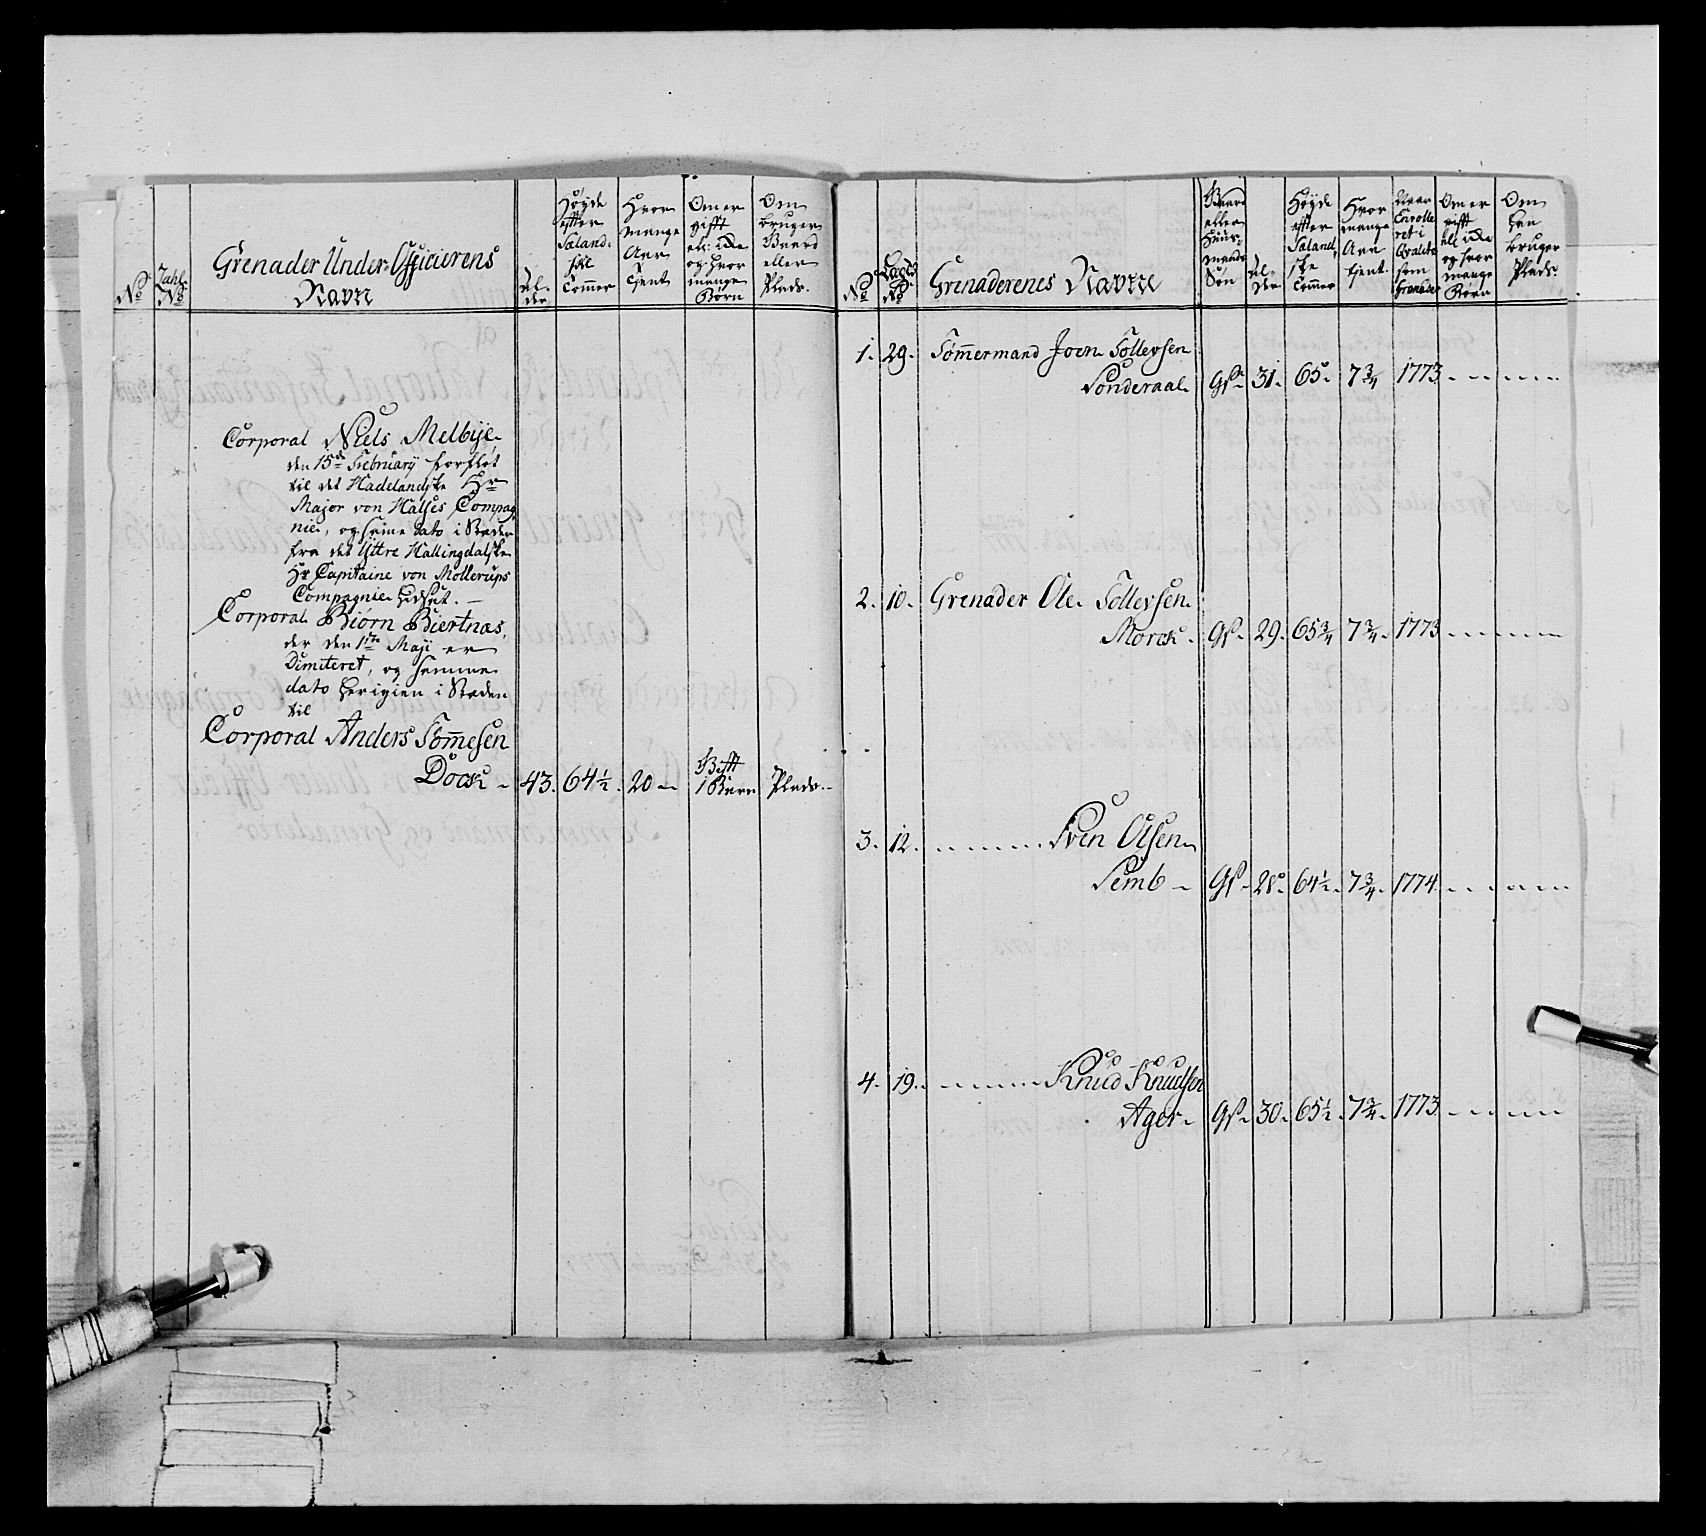 No
Zahl No
Grenader Under-Officierens
Navn
Al-
der
Høyde
efter
Sæland-
ske
Tommer
Hvor
mange
Aar
tient
Om er
gifft
ell: ikke
og hvor
mange
Børn
Om
bruger
Gaard
eller
Plads.
Corporal Niels Melbye
den 15de Februarÿ forfløt
til det Hadelandske Hr
Major von Halses Compag
nie, og samme dato i Stæden
fra det Yttre Hallingdalske
Hr Capitaine von Møllerups
Compagnie
Corporal Biørn Biertnæs,
der den 1ste Maji er
Dimiteret, og samme
dato herigien i Stæden
til
Corporal Anders Tommesen
Dock 43. 64½. 20 Gifft 1 Barn Plads.
No
Lægds
No
Grenaderenes Navne
Gaard
eller
Huus-
mands
Søn
Al-
der
Høyde
efter
Sæland-
ske
Tommer
Hvor
mange
Aar
tient
Naar
Enrolle
ret i
Qvalite
som
Grenader
Om er
gifft
ell ikke
og hvor
mange
Børn
Om
han
bruger
Plads.
1. 29. Tømmermand Joen Tollevsen
Sønderaal GS 31. 65. 7¾ 1773
2. 10. Grenader Ole Tollevsen
Morck GS 29. 65¾ 7¾ 1773
3. 12. Sven Olsen
Semb GS 28. 64½ 7¾ 1774
4. 19. Knud Knudsen
Ager GS 30. 65½ 7¾ 1773